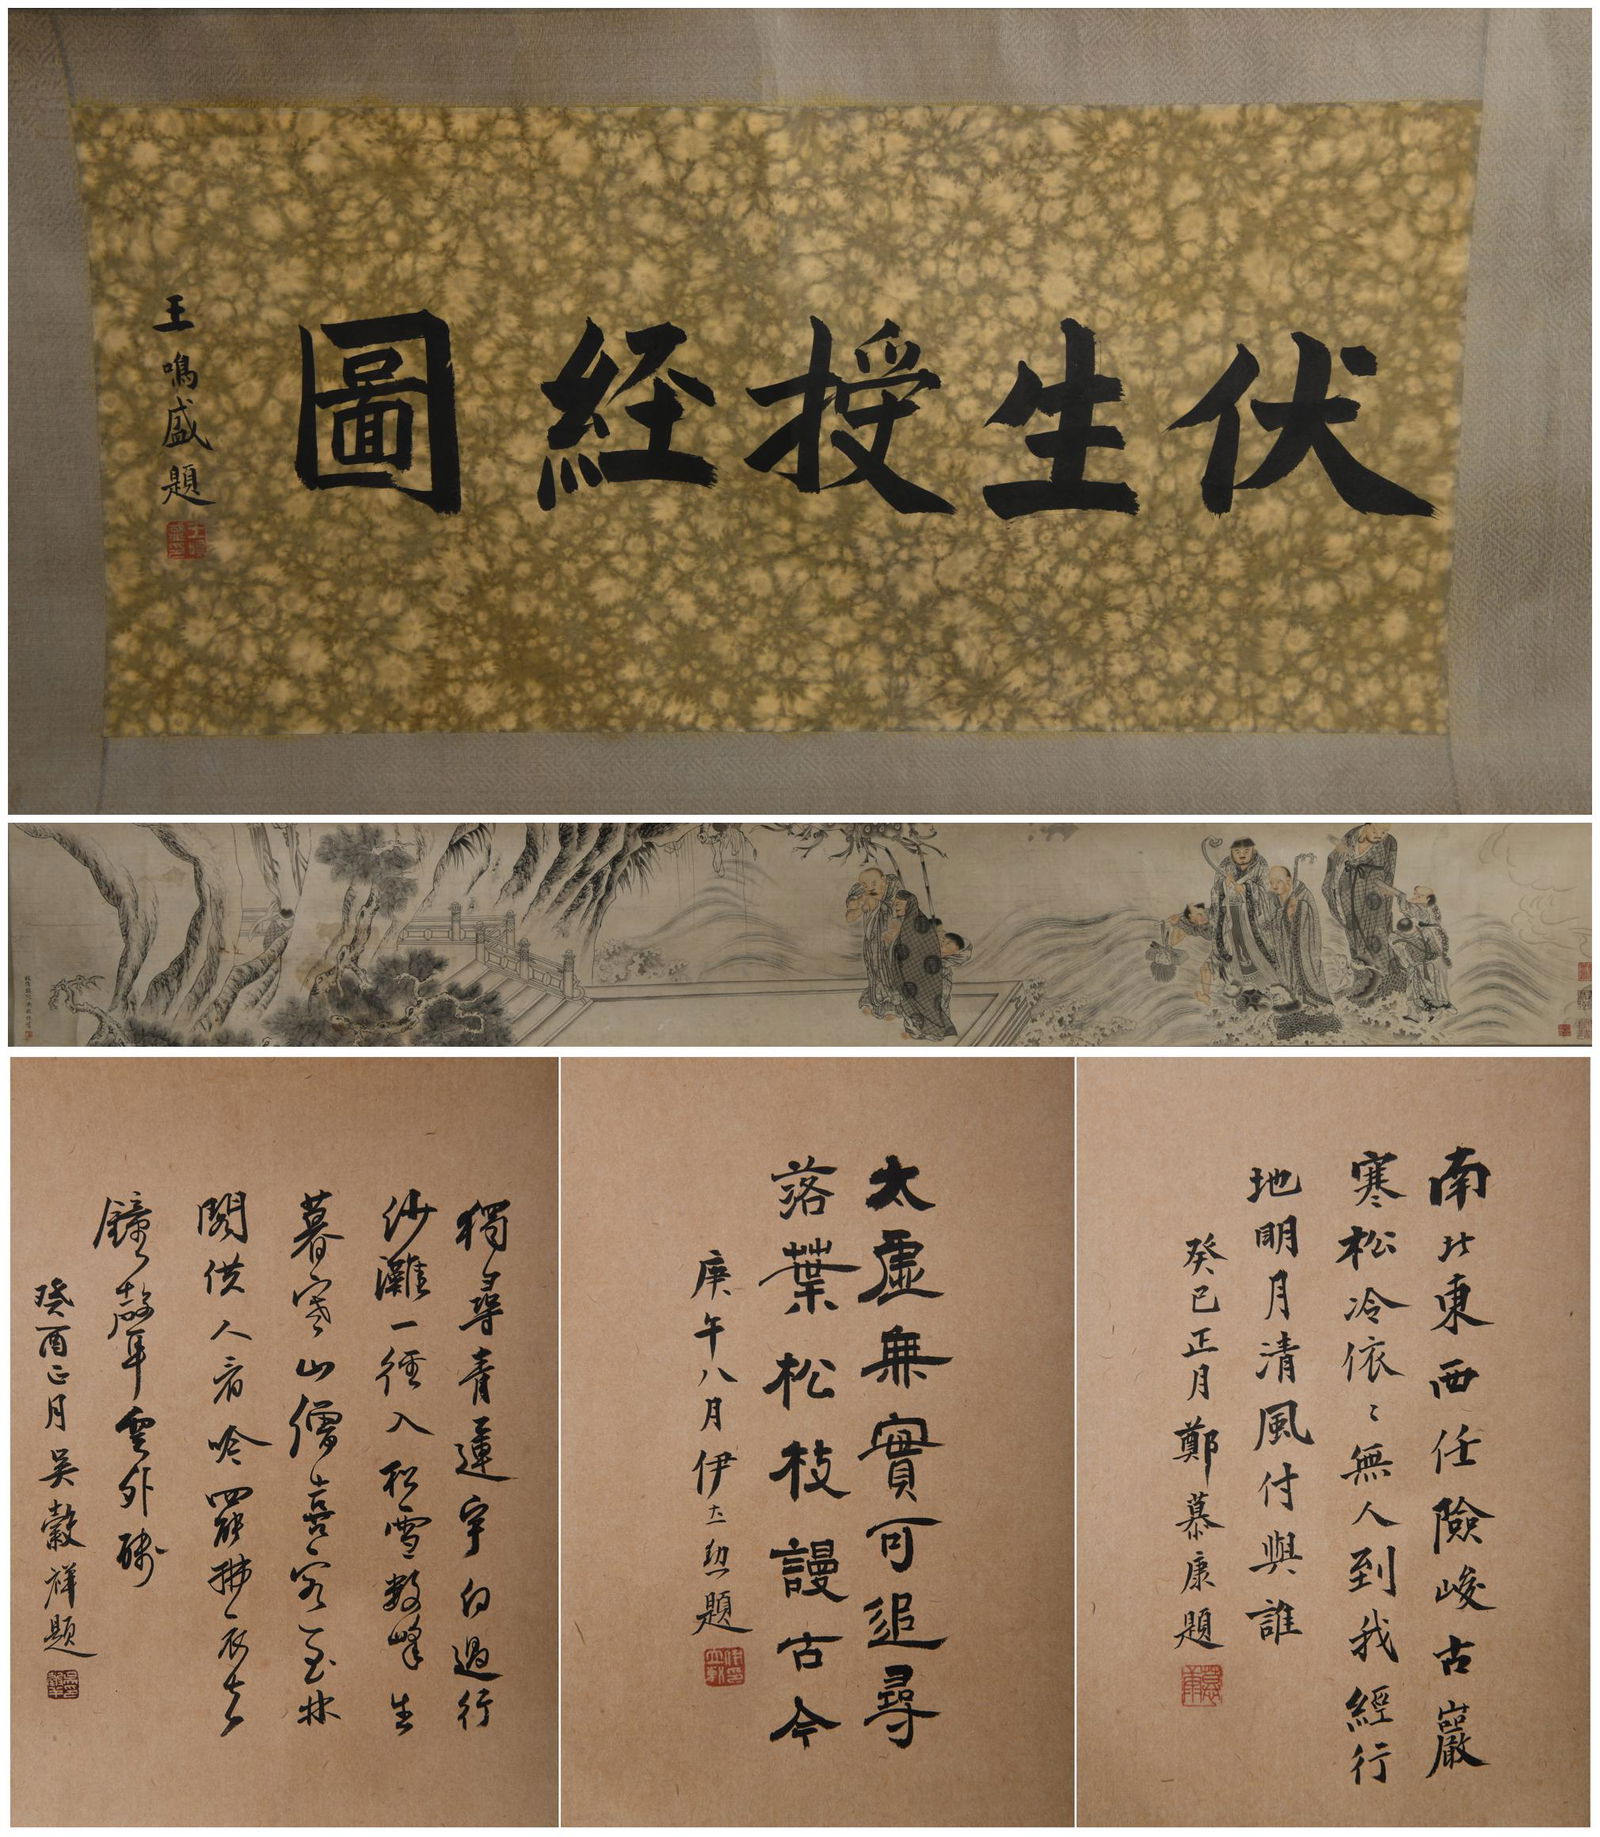 伏生授経圖
王鳴盛題
南北東西任險峻古巖
寒松冷依〻無人到我經行
地明月清風付與誰
癸巳正月鄭慕康題
太虛無實可追尋
落葉松枝謾古今
庚午八月伊立勳題
獨尋青蓮宇白過行
沙灘一徑入松雪數峰生
暮寒山僧喜客至林
閣供人看吟罷拂衣去
鐘聲雲外殘
癸酉正月吳穀祥題